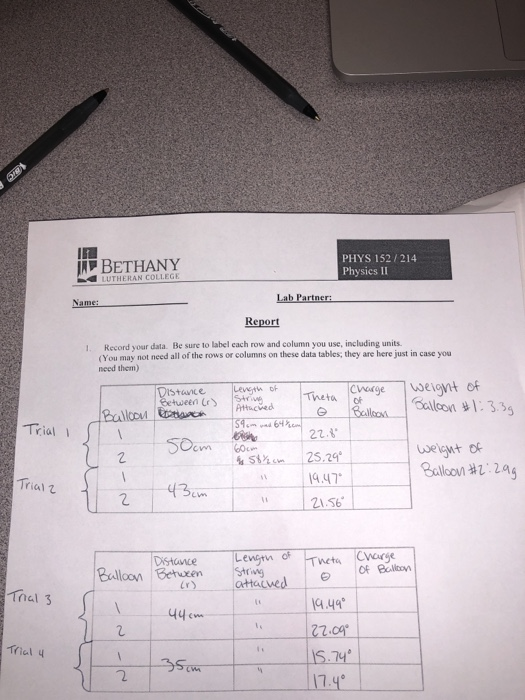 BIC
BETHANY
LUTHERAN COLLEGE
PHYS 152 / 214
Physics II
Name:
Lab Partner:
Report
1. Record your data. Be sure to label each row and column you use, including units.
(You may not need all of the rows or columns on these data tables; they are here just in case you
need them)
Balloon Distance Between (r) Length of String Attached Theta θ Charge of Balloon
Weight of
Balloon #1: 3.3g
Weight of
Balloon #2: 2.9g
Trial 1
1 50cm 59cm and 64½cm 22.8°
2 60cm & 58½cm 25.29°
Trial 2
1 43cm " 19.47°
2 " 21.56°
Balloon Distance Between (r) Length of String attached Theta θ Charge of Balloon
Trial 3
1 44cm " 19.49°
2 " 22.09°
Trial 4
1 35cm " 15.74°
2 " 17.4°